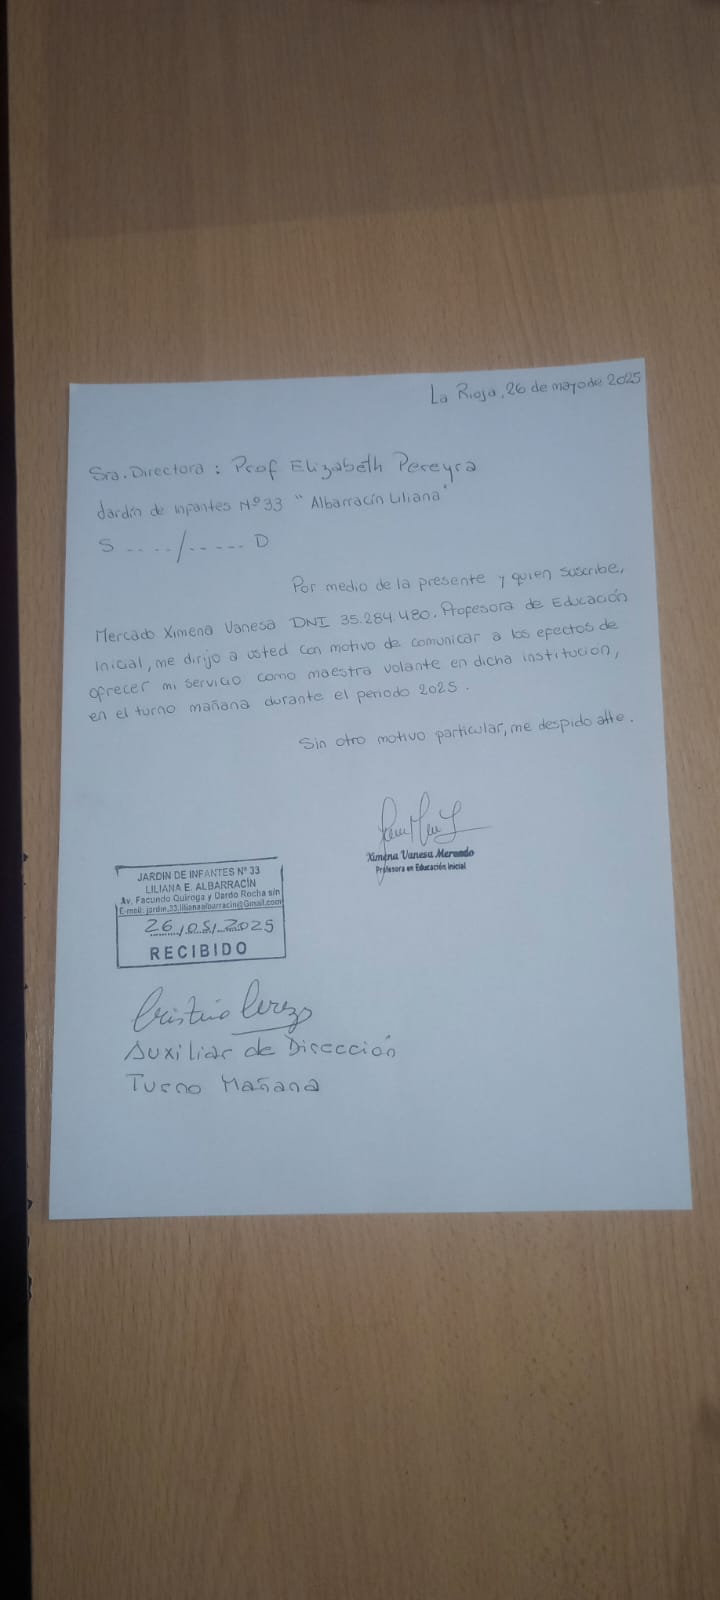 La Rioja, 26 de mayo de 2025
Sra. Directora : Prof Elizabeth Pereyra
Jardín de Infantes Nº 33 " Albarracín Liliana"
S ..../..... D
Por medio de la presente y quien suscribe,
Mercado Ximena Vanesa DNI 35.284.480. Profesora de Educación
Inicial, me dirijo a usted con motivo de comunicar a los efectos de
ofrecer mi servicio como maestra volante en dicha institución,
en el turno mañana durante el periodo 2025.
Sin otro motivo particular, me despido atte.
Ximena Vanesa Mercado
Profesora en Educación Inicial
JARDIN DE INFANTES Nº 33
LILIANA E. ALBARRACÍN
Av. Facundo Quiroga y Dardo Rocha s/n
E-mail: jardin.33.lilianaalbarracin@Gmail.com
26/05/2025
RECIBIDO
Cristina
Auxiliar de Dirección
Turno Mañana